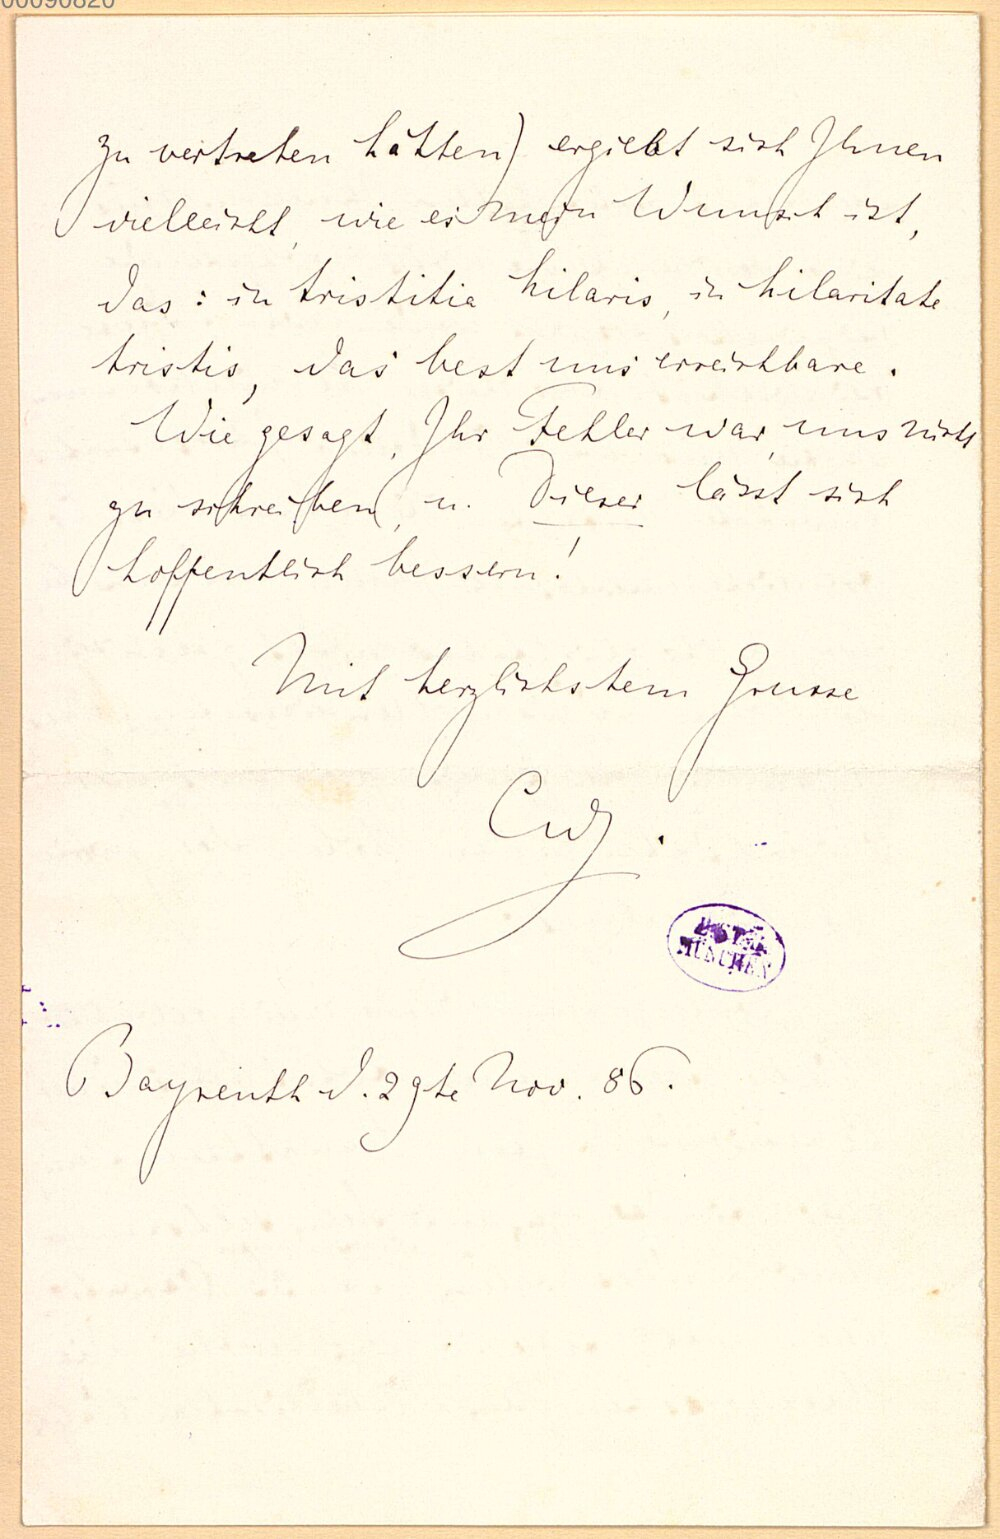 00090820
zu vertreten hätten) ergiebt sich Ihnen
vielleicht, wie es mein Wunsch ist,
das: in tristitia hilaris, in hilaritate
tristis, das best uns erreichbare.
Wie gesagt, Ihr Fehler war, uns nicht
zu schreiben, u. Dieser lässt sich
hoffentlich bessern!
Mit herzlichstem Grusse
CW.
MÜNCHEN
Bayreuth d. 29te Nov. 86.